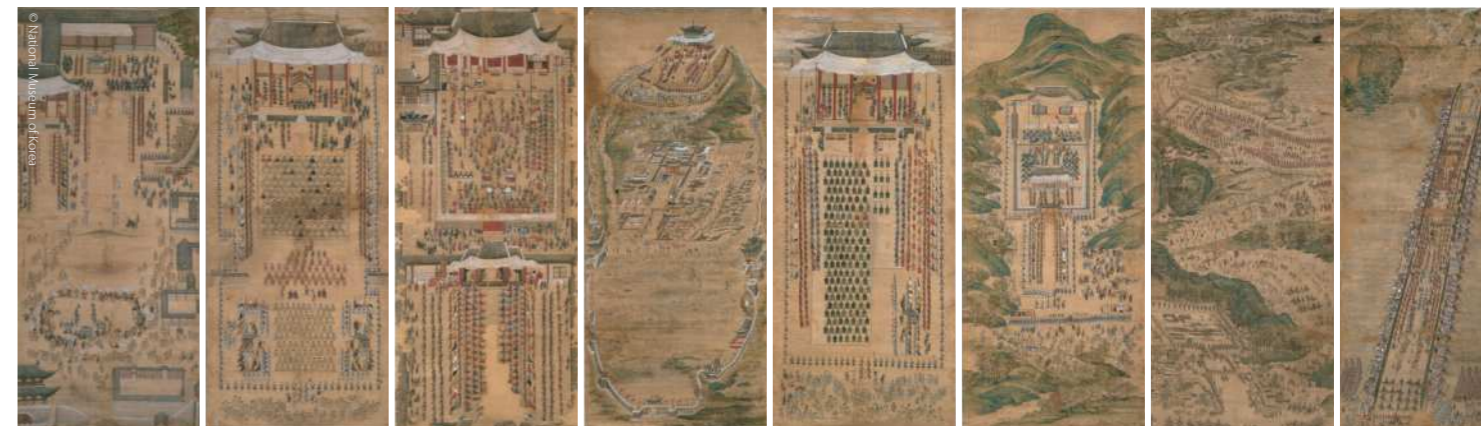 © National Museum of Korea